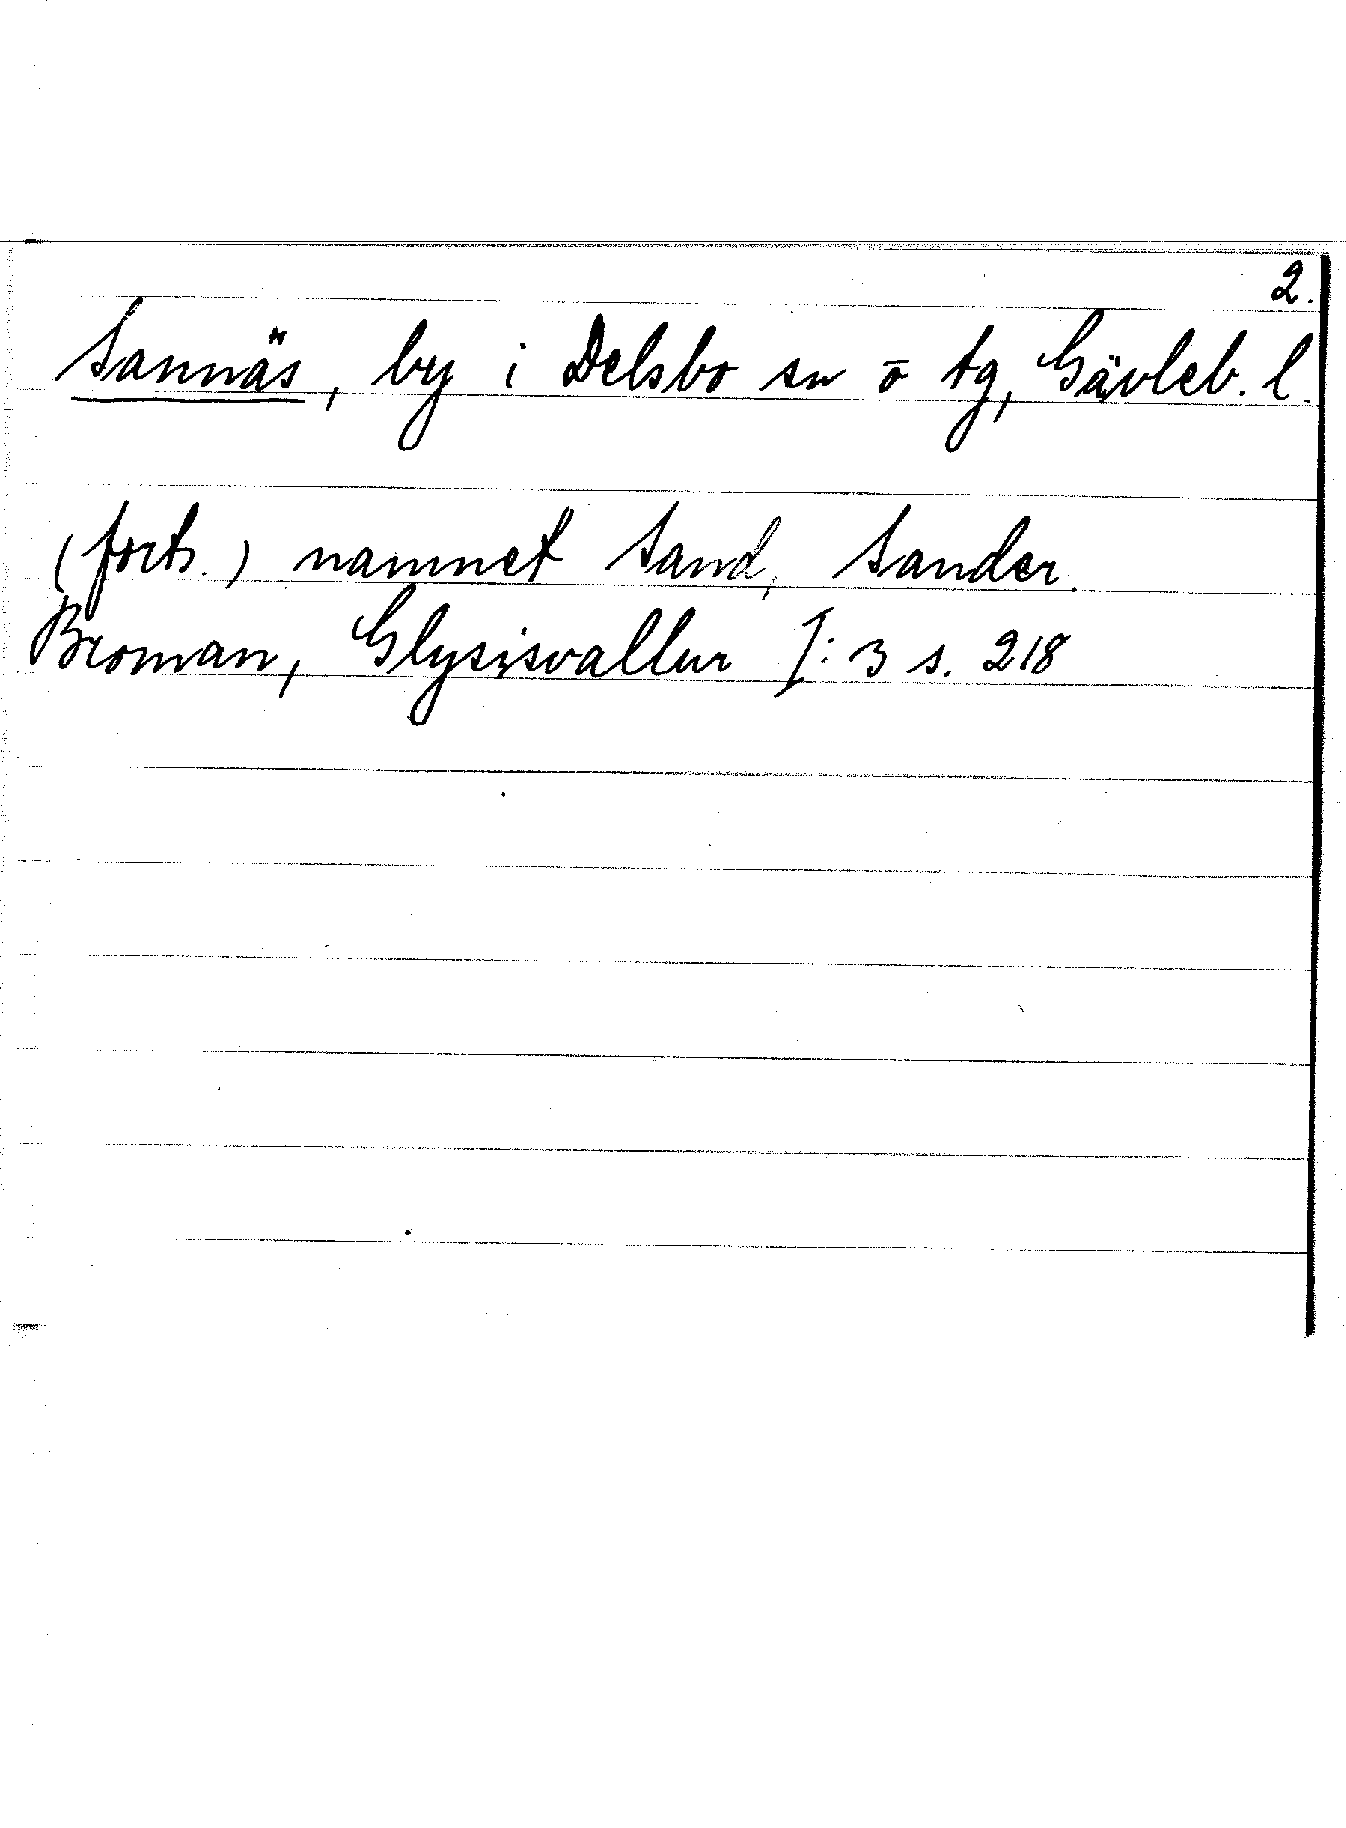 2.
Sannäs, by i Delsbo sn o tg, Gävleb. l.
(forts.) namnet Sand, Sander.
Broman, Glysisvallur I: 3 s. 218